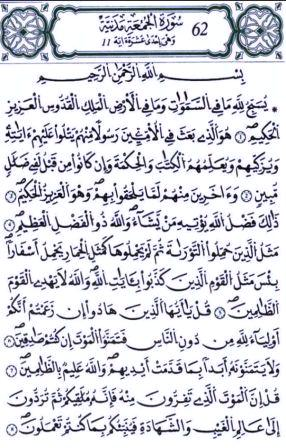 سُورَةُ الْجُمُعَةِ مَدَنِيَّةٌ 62
وَهِيَ إِحْدَى عَشْرَةَ آيَةً 11
بِسْمِ اللَّهِ الرَّحْمَنِ الرَّحِيمِ
يُسَبِّحُ لِلَّهِ مَا فِي السَّمَوَاتِ وَمَا فِي الْأَرْضِ الْمَلِكِ الْقُدُّوسِ الْعَزِيزِ
الْحَكِيمِ ۝١ هُوَ الَّذِي بَعَثَ فِي الْأُمِّيِّينَ رَسُولًا مِنْهُمْ يَتْلُوا عَلَيْهِمْ آيَاتِهِ
وَيُزَكِّيهِمْ وَيُعَلِّمُهُمُ الْكِتَابَ وَالْحِكْمَةَ وَإِنْ كَانُوا مِنْ قَبْلُ لَفِي ضَلَالٍ
مُبِينٍ ۝٢ وَآخَرِينَ مِنْهُمْ لَمَّا يَلْحَقُوا بِهِمْ وَهُوَ الْعَزِيزُ الْحَكِيمُ ۝٣
ذَلِكَ فَضْلُ اللَّهِ يُؤْتِيهِ مَنْ يَشَاءُ وَاللَّهُ ذُو الْفَضْلِ الْعَظِيمِ ۝٤
مَثَلُ الَّذِينَ حُمِّلُوا التَّوْرَاةَ ثُمَّ لَمْ يَحْمِلُوهَا كَمَثَلِ الْحِمَارِ يَحْمِلُ أَسْفَارًا
بِئْسَ مَثَلُ الْقَوْمِ الَّذِينَ كَذَّبُوا بِآيَاتِ اللَّهِ وَاللَّهُ لَا يَهْدِي الْقَوْمَ
الظَّالِمِينَ ۝٥ قُلْ يَا أَيُّهَا الَّذِينَ هَادُوا إِنْ زَعَمْتُمْ أَنَّكُمْ
أَوْلِيَاءُ لِلَّهِ مِنْ دُونِ النَّاسِ فَتَمَنَّوُا الْمَوْتَ إِنْ كُنْتُمْ صَادِقِينَ ۝٦
وَلَا يَتَمَنَّوْنَهُ أَبَدًا بِمَا قَدَّمَتْ أَيْدِيهِمْ وَاللَّهُ عَلِيمٌ بِالظَّالِمِينَ ۝٧
قُلْ إِنَّ الْمَوْتَ الَّذِي تَفِرُّونَ مِنْهُ فَإِنَّهُ مُلَاقِيكُمْ ثُمَّ تُرَدُّونَ
إِلَى عَالِمِ الْغَيْبِ وَالشَّهَادَةِ فَيُنَبِّئُكُمْ بِمَا كُنْتُمْ تَعْمَلُونَ ۝٨